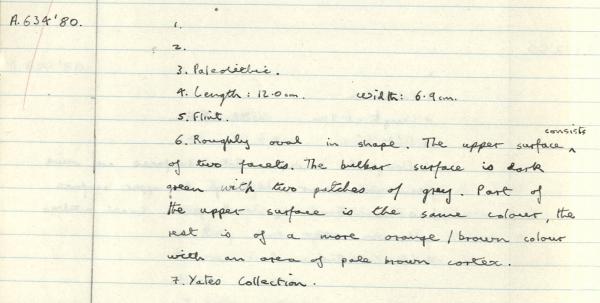 A.634'80.
1.
2.
3. Paleolithic.
4. Length: 12.0cm. Width: 6.9cm.
5. Flint.
6. Roughly oval in shape. The upper surface consists
of two facets. The bulbar surface is dark
green with two patches of grey. Part of
the upper surface is the same colour, the
rest is of a more orange/brown colour
with an area of pale brown cortex.
7. Yates Collection.